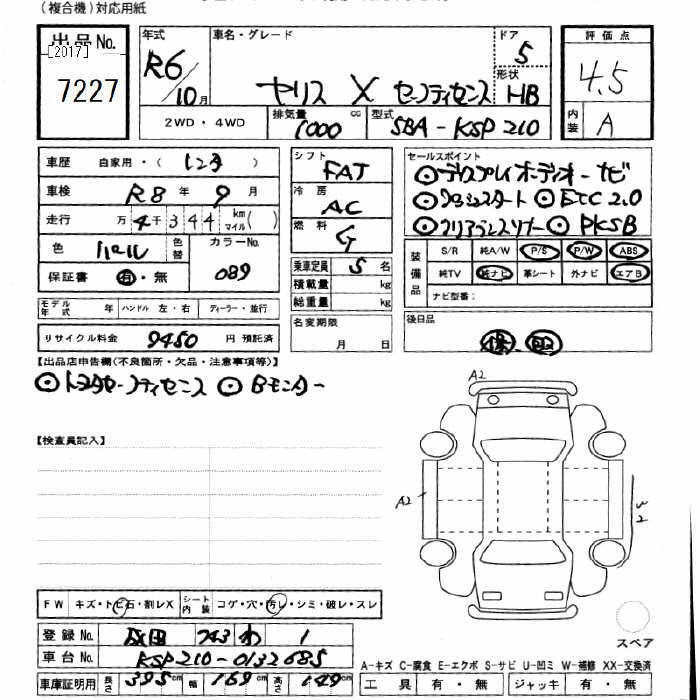 (複合機)対応用紙
出品No.
[2017]
7227
年式
R6/10月
車名・グレード
ヤリス X セーフティセンス
ドア
5
形状
HB
評価点
4.5
内装
A
2WD・4WD
排気量
1000 cc
型式
5BA-KSP210
車歴 自家用・(レンタ)
車検 R8年 9月
走行 万4千344 km マイル( )
色 パール 色替 カラーNo. 089
保証書 有・無
モデル年式 年 ハンドル 左・右 ディーラー・並行
リサイクル料金 9450 円 預託済
シフト
FAT
冷房
AC
燃料
G
乗車定員 5名
積載量 kg
総重量 kg
名変期限
月 日
セールスポイント
◎ディスプレイオーディオーナビ
◎プッシュスタート ◎ETC2.0
◎クリアランスソナー ◎PKSB
装備品
S/R 純A/W P/S P/W ABS
純TV 純ナビ 革シート 外ナビ エアB
ナビ型番:
後日品
保 取
【出品店申告欄(不良箇所・欠品・注意事項等)】
◎トヨタセーフティセンス ◎Bモニター
【検査員記入】
A2
A2
FW キズ・トビ石・割レX シート内装 コゲ・穴・汚レ・シミ・破レ・スレ
登録No. 成田 743 わ 1
車台No. KSP210-0132685
車庫証明用 長さ 395cm 幅 169cm 高さ 149cm
スペア
A-キズ C-腐食 E-エクボ S-サビ U-凹ミ W-補修 XX-交換済
工具 有・無 ジャッキ 有・無